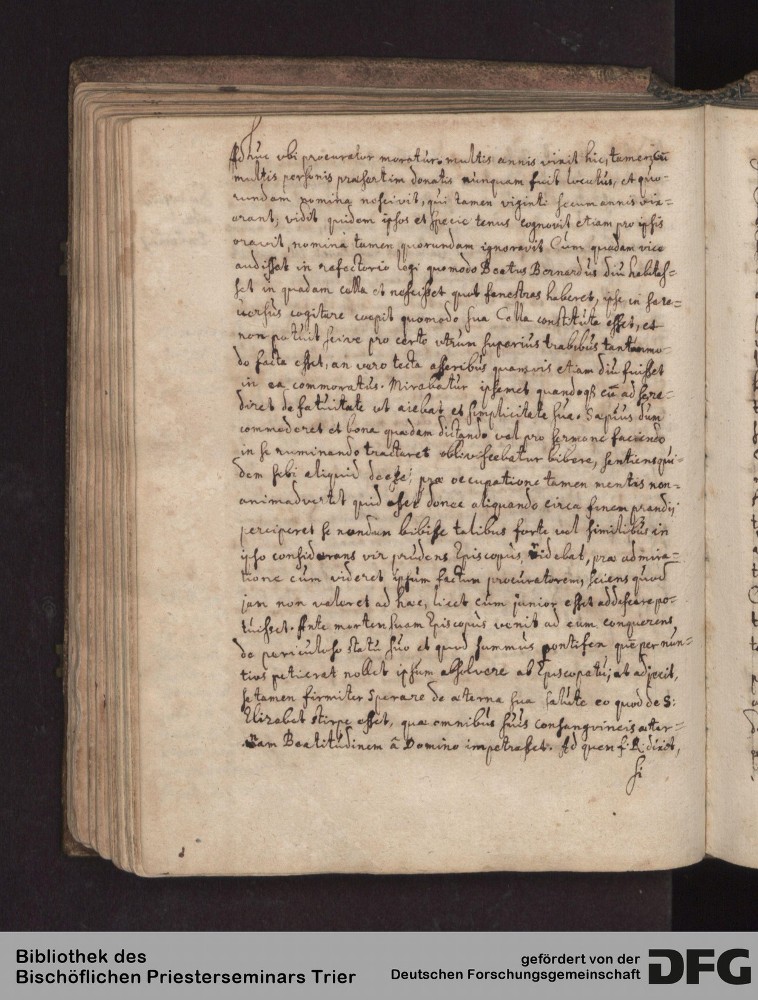 Adhuc ubi procurator moratur. multis annis vixit hic, tamen cū
multis personis præsertim donatis nunquam fuit locutus, et quo-
rundam nomina nescivit, qui tamen viginti secum annis vix-
erant; vidit quidem ipsos et specie tenus cognovit etiam pro ipsis
oravit, nomina tamen quorundam ignoravit Cum quadam vice
audisset in refectorio legi quomodo Beatus Bernardus diu habitas-
set in quadam cella et nescisset quot fenestras haberet, ipse in se re-
versus cogitare coepit quomodo sua Cella constituta esset, et
non potuit scire pro certo utrum superius trabibus tantummo-
do facta esset, an vero tecta asseribus quamvis etiam diu fuisset
in ea commoratus. Mirabatur ipsemet quandoq; cū ad se re-
diret de fatuitate ut aiebat et simplicitate sua. Sæpius dum
commederet et bona quædam dictando vel pro sermone faciendo
in se ruminando tractaret obliviscebatur bibere, sentiens qui-
dem sibi aliquid deesse; præ occupatione tamen mentis non-
animadvertit quid esset donec aliquando circa finem prandij
perciperet se nondum bibisse talibus forte vel similibus in
ipso considerans vir prudens Episcopus, ridebat, præ admira-
tione cum videret ipsum factum procuratorem, sciens quod
jam non valeret ad hæc, licet cum junior esset addiscere po-
tuisset. Ante mortem suam Episcopus venit ad eum conquerens,
de periculoso statu suo et quod summus pontifex quē per nun-
tios petieret nollet ipsum absolvere ab Episcopatu; at adjecit,
se tamen firmiter sperare de æterna sua salute eo quod de S:
Elizabet stirpe esset, quæ omnibus suis consangvineis æter-
nam Beatitudinem â Domino impetrasset. Ad quem f. R. dixit,
si
Bibliothek des
Bischöflichen Priesterseminars Trier
gefördert von der
Deutschen Forschungsgemeinschaft
DFG